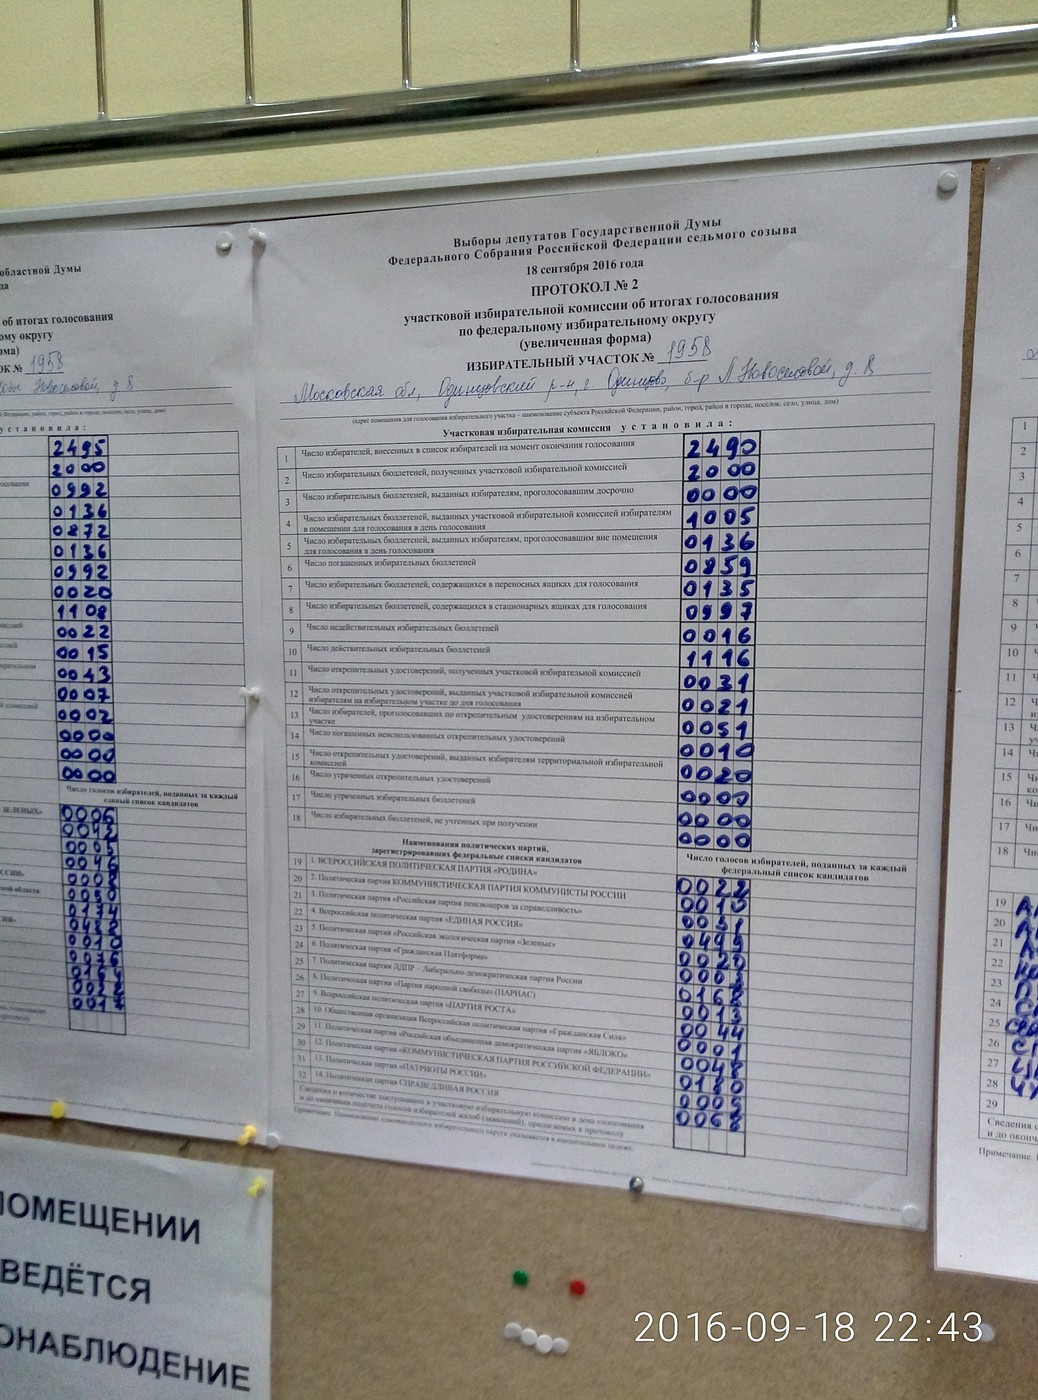 областной Думы
да
об итогах голосования
ому округу
рма)
ОК № 1958
Новоселовой, д 8
у с т а н о в и л а :
2495
2000
0992
0136
0872
0136
0992
0020
1108
0022
0015
0043
0007
0002
0000
0000
0000
Число голосов избирателей, поданных за каждый
единый список кандидатов
ЗЕЛЕНЫЕ»
0006
Выборы депутатов Государственной Думы
Федерального Собрания Российской Федерации седьмого созыва
18 сентября 2016 года
ПРОТОКОЛ № 2
участковой избирательной комиссии об итогах голосования
по федеральному избирательному округу
(увеличенная форма)
ИЗБИРАТЕЛЬНЫЙ УЧАСТОК № 1958
Московская обл, Одинцовский р-н, г. Одинцово, б-р Л.Новоселовой, д. 8
(адрес помещения для голосования избирательного участка – наименование субъекта Российской Федерации, район, город, район в городе, поселок, село, улица, дом)
Участковая избирательная комиссия у с т а н о в и л а :
1 Число избирателей, внесенных в список избирателей на момент окончания голосования 2490
2 Число избирательных бюллетеней, полученных участковой избирательной комиссией 2000
3 Число избирательных бюллетеней, выданных избирателям, проголосовавшим досрочно 0000
4 Число избирательных бюллетеней, выданных участковой избирательной комиссией избирателям
в помещении для голосования в день голосования 1005
5 Число избирательных бюллетеней, выданных избирателям, проголосовавшим вне помещения
для голосования в день голосования 0136
6 Число погашенных избирательных бюллетеней 0859
7 Число избирательных бюллетеней, содержащихся в переносных ящиках для голосования 0135
8 Число избирательных бюллетеней, содержащихся в стационарных ящиках для голосования 0997
9 Число недействительных избирательных бюллетеней 0016
10 Число действительных избирательных бюллетеней 1116
11 Число открепительных удостоверений, полученных участковой избирательной комиссией 0031
12 Число открепительных удостоверений, выданных участковой избирательной комиссией
избирателям на избирательном участке до дня голосования 0021
13 Число избирателей, проголосовавших по открепительным удостоверениям на избирательном
участке 0051
14 Число погашенных неиспользованных открепительных удостоверений 0010
15 Число открепительных удостоверений, выданных избирателям территориальной избирательной
комиссией 0020
16 Число утраченных открепительных удостоверений 0000
17 Число утраченных избирательных бюллетеней 0000
18 Число избирательных бюллетеней, не учтенных при получении 0000
Наименования политических партий,
зарегистрировавших федеральные списки кандидатов
Число голосов избирателей, поданных за каждый
федеральный список кандидатов
19 1. ВСЕРОССИЙСКАЯ ПОЛИТИЧЕСКАЯ ПАРТИЯ «РОДИНА» 0022
20 2. Политическая партия КОММУНИСТИЧЕСКАЯ ПАРТИЯ КОММУНИСТЫ РОССИИ
21 3. Политическая партия «Российская партия пенсионеров за справедливость»
22 4. Всероссийская политическая партия «ЕДИНАЯ РОССИЯ» 0499
23 5. Политическая партия «Российская экологическая партия «Зеленые» 0020
24 6. Политическая партия «Гражданская Платформа»
25 7. Политическая партия ЛДПР - Либерально-демократическая партия России 0168
26 8. Политическая партия «Партия народной свободы» (ПАРНАС) 0013
27 9. Всероссийская политическая партия «ПАРТИЯ РОСТА» 0044
28 10. Общественная организация Всероссийская политическая партия «Гражданская Сила» 0001
29 11. Политическая партия «Российская объединенная демократическая партия «ЯБЛОКО» 0048
30 12. Политическая партия «КОММУНИСТИЧЕСКАЯ ПАРТИЯ РОССИЙСКОЙ ФЕДЕРАЦИИ» 0180
31 13. Политическая партия «ПАТРИОТЫ РОССИИ» 0005
32 14. Политическая партия СПРАВЕДЛИВАЯ РОССИЯ 0068
Сведения о количестве поступивших в участковую избирательную комиссию в день голосования
и до окончания подсчета голосов избирателей жалоб (заявлений), прилагаемых к протоколу
1
2
3
4
5
6
7
8
9
10
11
12
13
14
15
16
17
18
19
20
21
22
23
24
25
26
27
28
29
Сведения о
и до оконч
Примечание.
ПОМЕЩЕНИИ
ВЕДЁТСЯ
ОНАБЛЮДЕНИЕ
2016-09-18 22:43